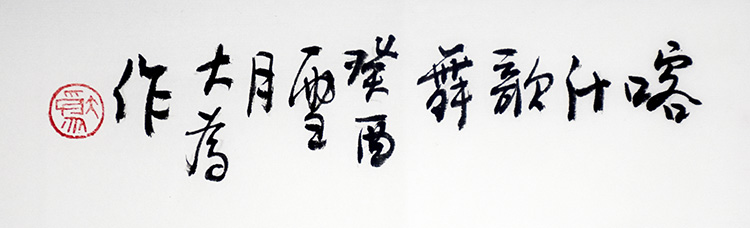 喀什歌舞癸酉雪月大為作